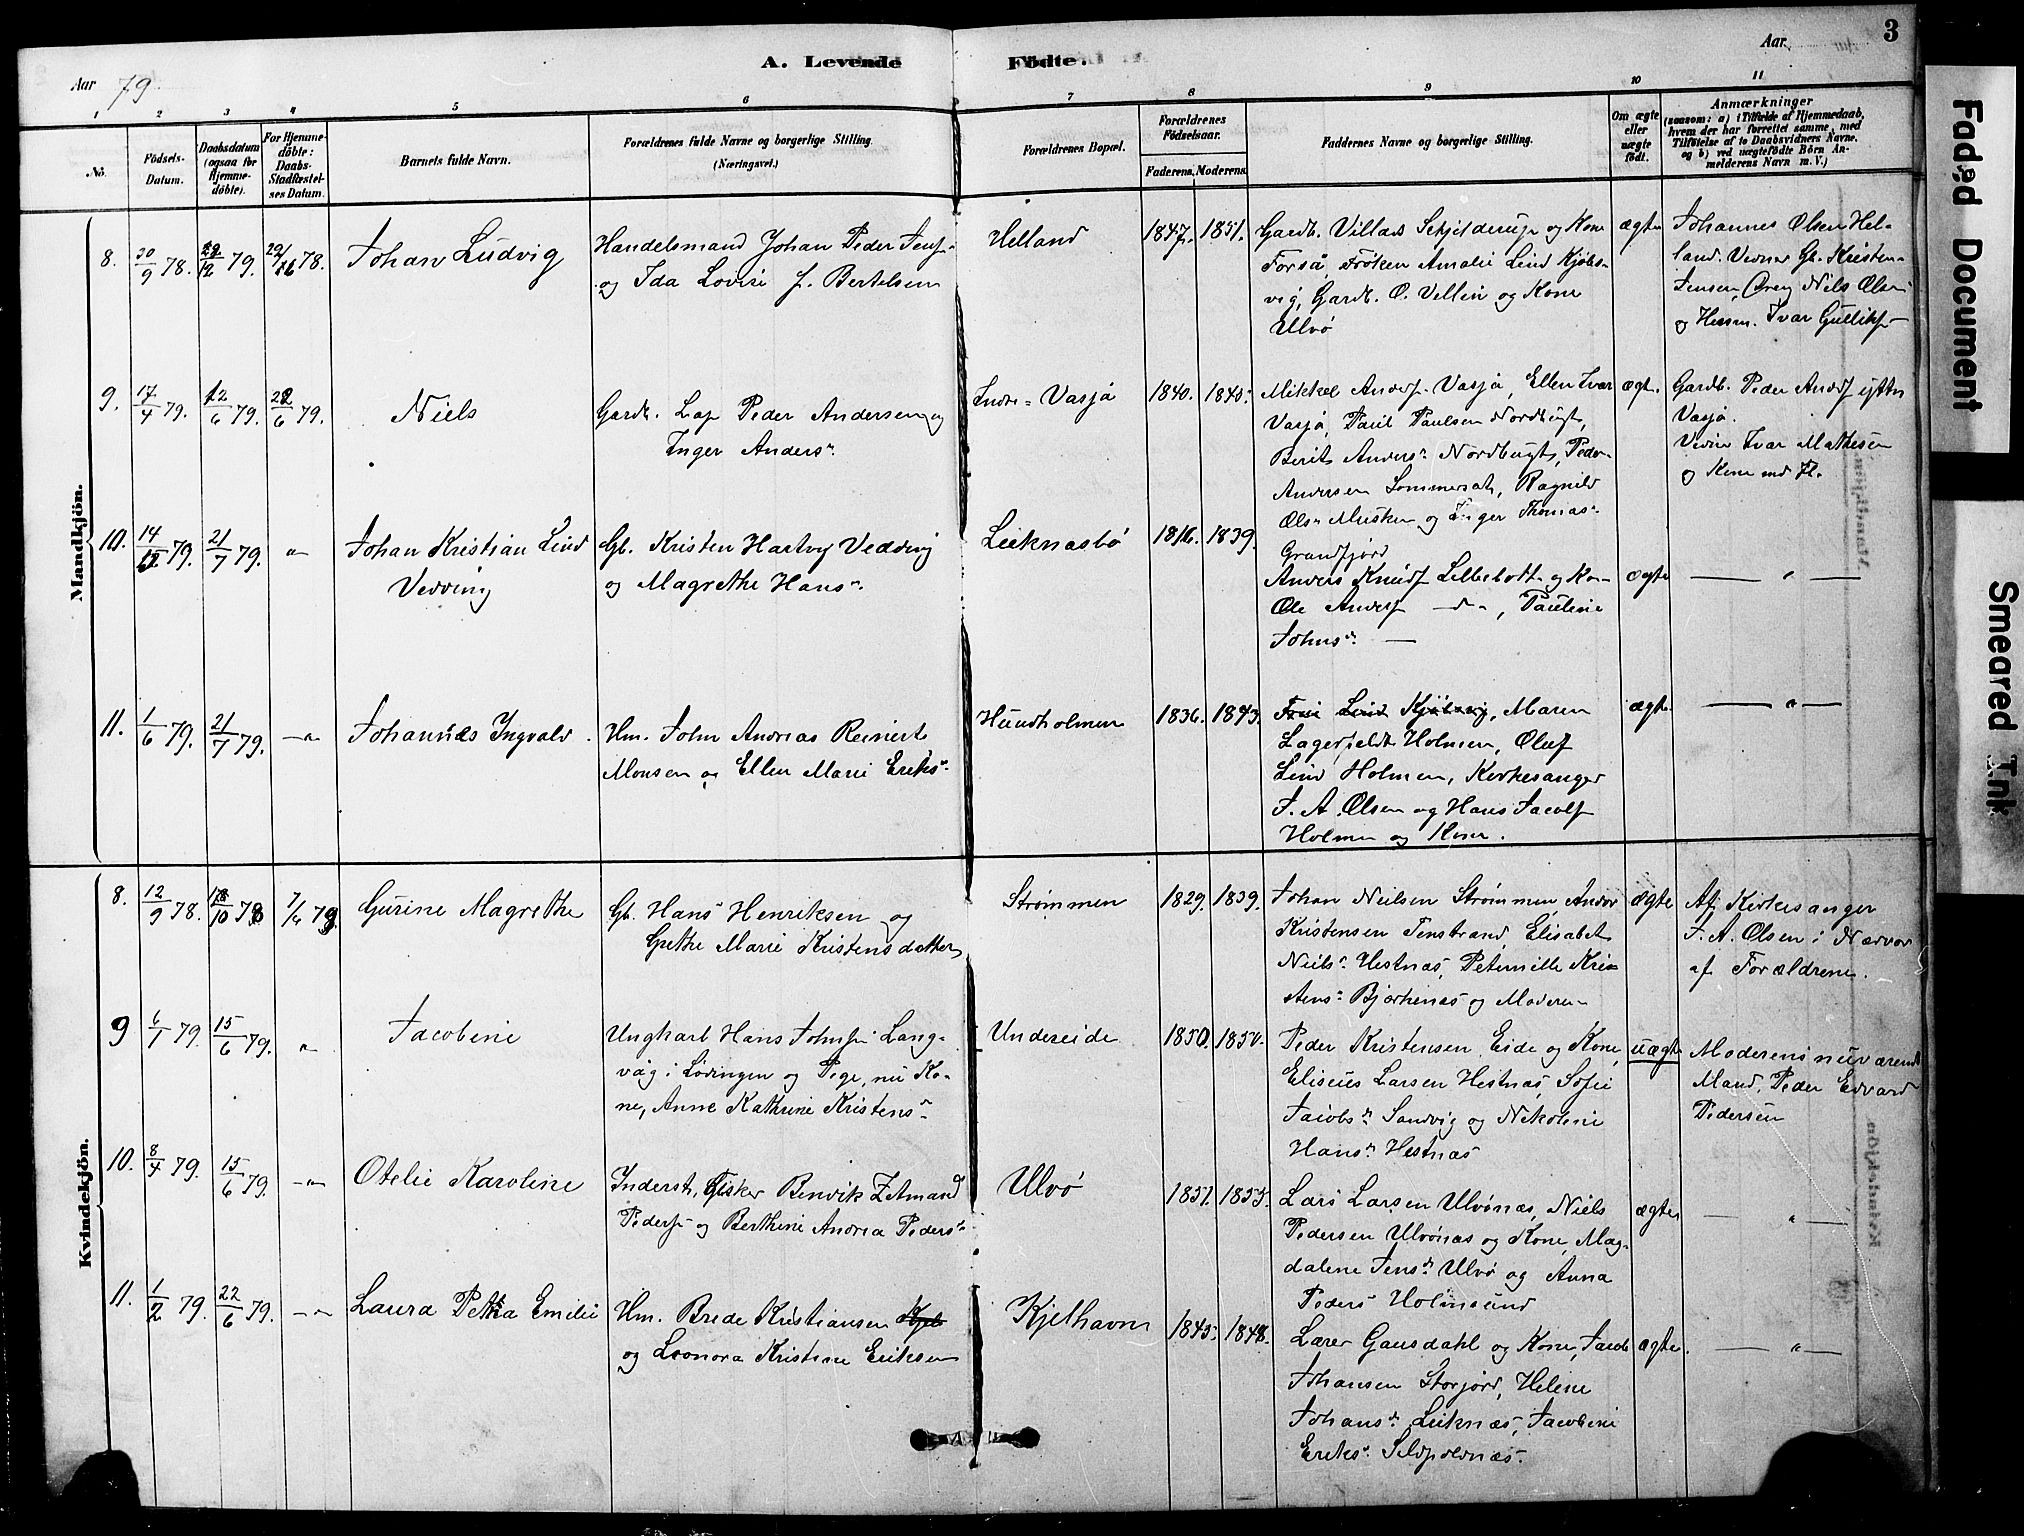 3
Aar 79
A. Levende Fødte.
Aar
1 2 3 4 5 6 7 8 9 10 11
No.
Fødsels-Datum.
Daabsdatum (ogsaa for Hjemmedöbte).
For Hjemmedöbte: Daabs-Stadfæstelses Datum.
Barnets fulde Navn.
Forældrenes fulde Navne og borgerlige Stilling. (Næringsvei.)
Forældrenes Bopæl.
Forældrenes Födselsaar.
Faderens. Moderens.
Faddernes Navne og borgerlige Stilling.
Om ægte eller uægte født.
Anmærkninger
(saasom: a) i Tilfælde af Hjemmedaab, hvem der har forrettet samme, med Tilføielse af to Daabsvidners Navne, og b) ved uægtefödte Börn Anmelderens Navn m. V.)
Mandkjön.
8. 30/9 78. 12 79. 78.
Johan Ludvig
Handelsmand Johan Peder Jens-
og Ida Lovise f. Bertelsen
Helland
1847. 1851.
Gardb. Villars Schjelderup og Kone
Forså, Frøken Amalie Lind Kjøbs-
vig, Gardb. O. Vellin og Kone
Ulvø
ægte
Johannes Olsen Hel-
land. Vidner Gb. Kristen
Jensen, Niels Olsen
og Husm. Ivar Gulliks-
9. 17/4 79. 12/6 79. 22/6 79.
Niels
Gardb. Lap Peder Andersen og
Inger Anders.
Indre- Vasjá
1840. 1840.
Mikkel Anders- Vasjá, Ellen Ivar
Vasjá, Paul Paulsen Nordbugt,
Berit Anders. Nordbugt, Peder
Andersen Sommerset, Ragnild
Ols. Musken og Inger Thomas.
Grundfjord
ægt.
Gardb. Peder Anders ytter
Vasjá.
Vidner Ivar Mathesen
og Kone
10. 14/ 79. 21/7 79. "
Johan Kristian Lind
Vedving
Gb. Kristen Hartvig Vedving
og Magrethe Hans.
Leiknasbø
1816. 1839.
Anders Knuds Lillebott og Ko-
Ole Anders - d -, Pauline
Johns. -
ægte
- " -
11. 1/6 79. 21/7 79. - " -
Johannes Ingvald.
Hm. John Andreas Reinert
Monsen og Ellen Marie Eriks.
Hundholmen
1836. 1843.
Lind Kjöbsvig, Maren
Lagerfeldt Holmen, Oluf
Lind Holmen, Kirkesanger
J. A. Olsen og Hans Jacobs
Holmen og Kone.
ægte
- " -
Kvindekjön.
8. 12/9 78. 18/10 78 7/4 79
Gurine Magrethe
Gb. Hans Henriksen og
Grethe Marie Kristensdatter
Strømmen
1829. 1839.
Johan Neilsen Strømmen, Andor
Kristensen Tenstrand, Elisabet
Niels. Hestnæs, Peternille Kri-
stens. Bjørkenæs og Moderen
ægte
Af Kirkesanger
J. A. Olsen i Nærvær
af Forældrene.
9 6/1 79. 15/6 79. "
Jacobine
Ungkarl Hans Johns- Lang-
våg i Lødingen og Pige, nu Ko-
ne, Anne Kathrine Kristens.
Undereide
1850. 1850.
Peder Kristensen Eide og Kone,
Eliseus Larsen Hestnæs, Sofie
Jacobs. Sandvig og Nikoline
Hans. Hestnæs
uægte
Moderens nuværende
Mand, Peder Edvard
Pedersen
10. 8/4 79. 15/6 79. - " -
Otelie Karoline
Inderst, Fisker Benvik Zetmand
Peders- og Berthine Andrea Peders.
Ulvø
1851. 1855.
Lars Larsen Ulvönæs, Niels
Pedersen Ulvönæs og Kone, Mag-
dalene Jens. Ulvø og Anna
Peders Holmsund
ægte
- " -
11. 1/2 79. 22/6 79. - " -
Laura Petra Emilie
Hm. Brede Kristiansen
og Leonora Kristine Eriksen
Kjelhavn
1845. 1848.
Lærer Gausdahl og Kone, Jacob
Johansen Storjord, Heline
Johans. Leiknæs, Jacobine
Eriks.
ægte.
- " -
Faded Document
Smeared Ink